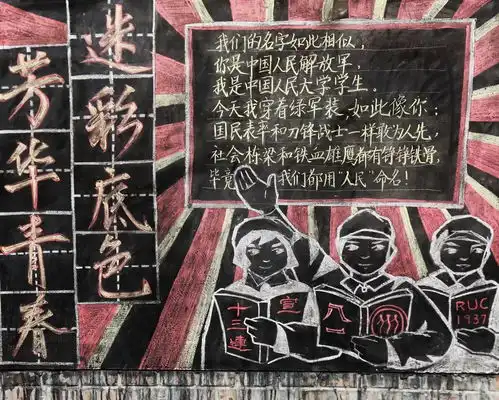 迷彩底色
芳华青春
我们的名字如此相似，
你是中国人民解放军，
我是中国人民大学学生。
今天我穿着绿军装，如此像你；
国民表率和刀锋战士一样敢为人先，
社会栋梁和铁血雄鹰都有铮铮铁骨，
毕竟 我们都用“人民”命名！
十三连
宣
八一
RUC
1937